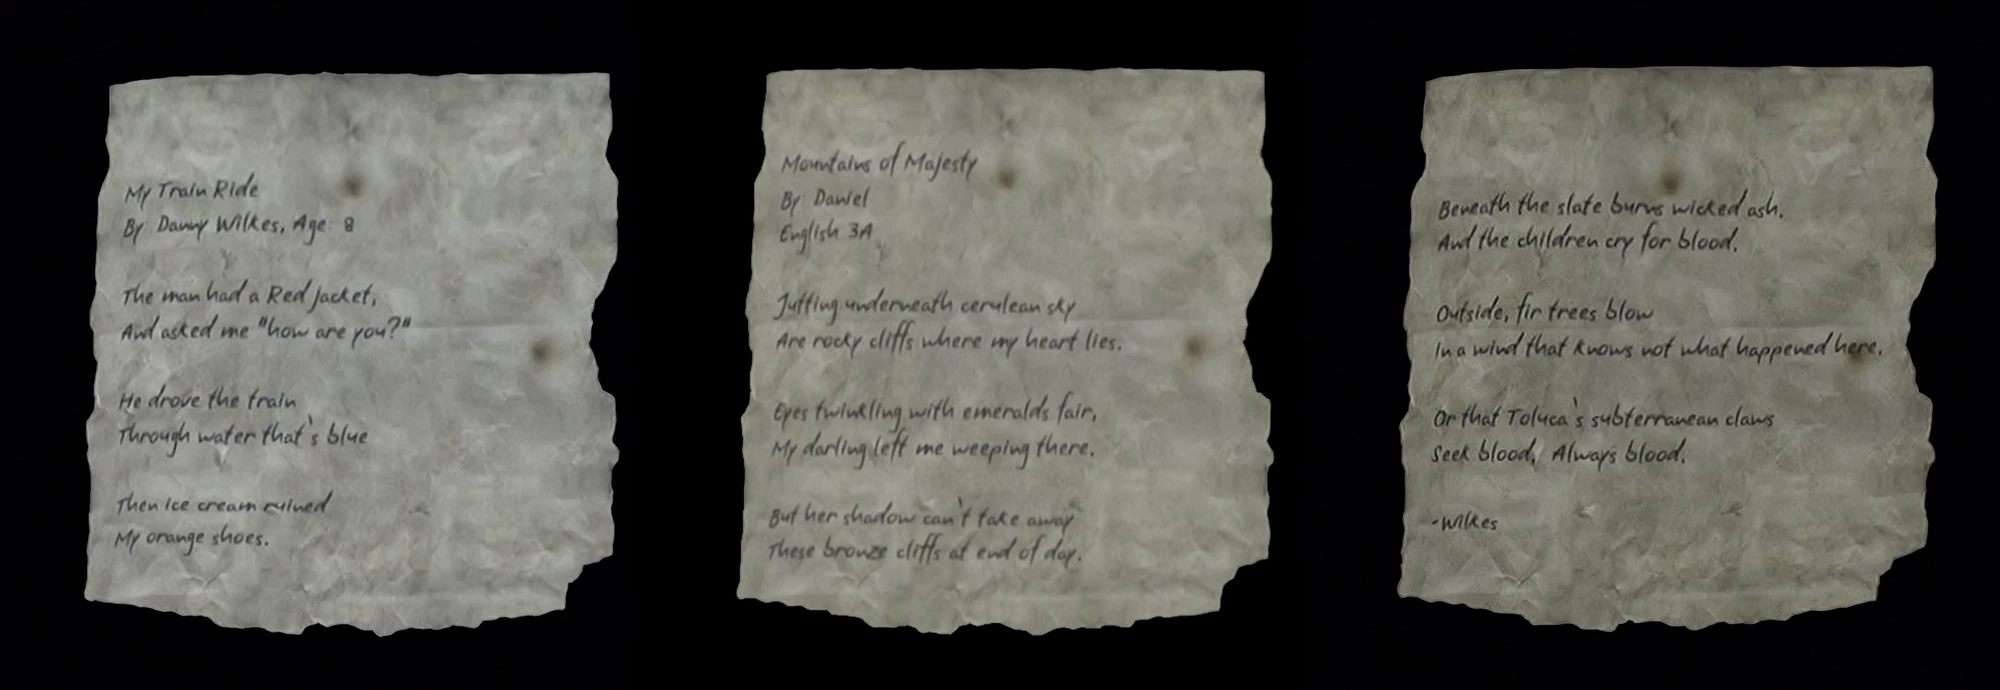 My Train Ride
By: Danny Wilkes, Age: 8
The man had a Red Jacket,
And asked me "how are you?"
He drove the train
Through water that's blue
Then ice cream ruined
My orange shoes.
Mountains of Majesty
By: Daniel
English 3A
Jutting underneath cerulean sky
Are rocky cliffs where my heart lies.
Eyes twinkling with emeralds fair,
My darling left me weeping there.
But her shadow can't take away
These bronze cliffs at end of day.
Beneath the slate burns wicked ash.
And the children cry for blood.
Outside, fir trees blow
In a wind that knows not what happened here.
Or that Toluca's subterranean claws
Seek blood. Always blood.
-Wilkes